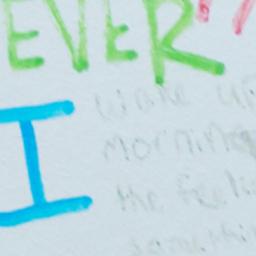 EVER
I wake up
morning
the feeli
somethin